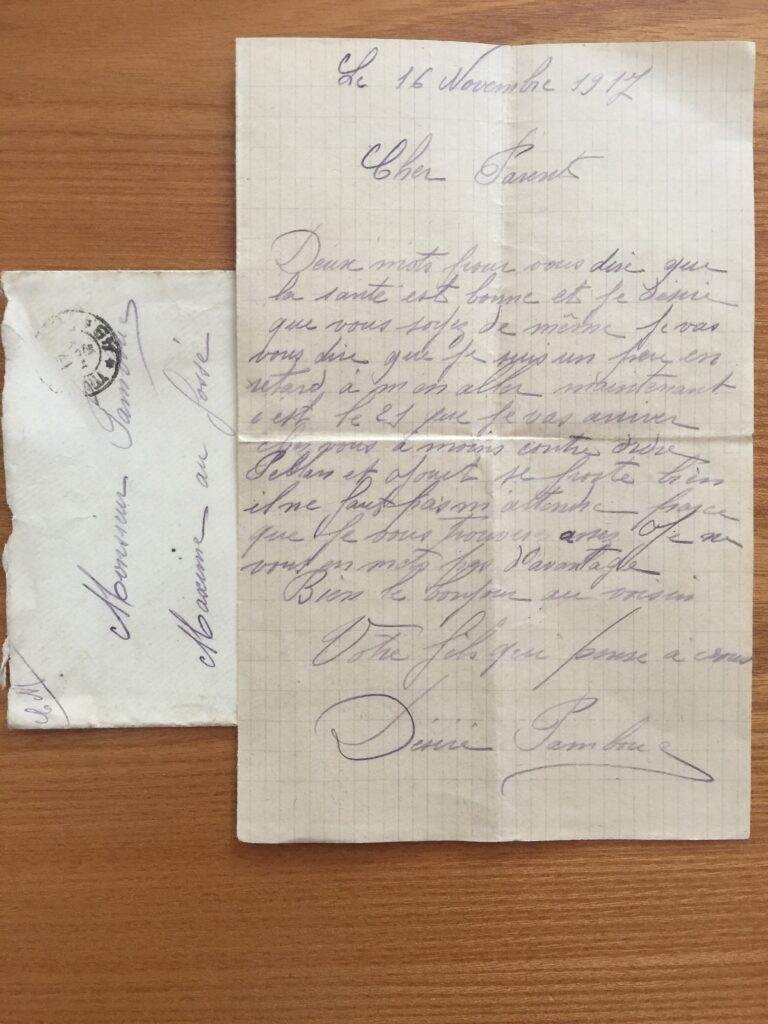 Le 16 Novembre 1917
Cher Parent
Deux mots pour vous dire que
la santé est bonne et je désire
que vous soyez de même je vas
vous dire que je suis un pere en
retard à m on aller maintenant
c est le 21 que je vas arriver
chez vous a moins contre ordre
et se porte bien
il ne faut pas m attendre parce
que je vous trouverez Je ne
vous en mots pas d'avantage
Bien le bonjour au voisin
Votre fils qui panse à vous
Désiré Pambouc
Monsieur Pambouc
Maxime au fossé